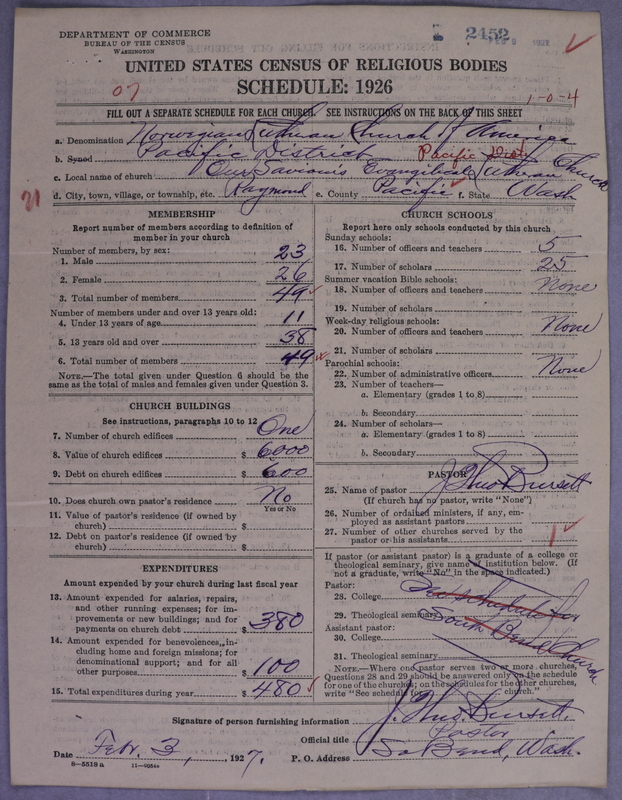 DEPARTMENT OF COMMERCE
BUREAU OF THE CENSUS
WASHINGTON
2452
1927
UNITED STATES CENSUS OF RELIGIOUS BODIES
SCHEDULE: 1926
07
1-0-4
FILL OUT A SEPARATE SCHEDULE FOR EACH CHURCH. SEE INSTRUCTIONS ON THE BACK OF THIS SHEET
a. Denomination Norwegian Lutheran Church of America
b. Synod Pacific District Pacific Dist
c. Local name of church Our Saviour's Evangelical Lutheran Church
d. City, town, village, or township, etc. Raymond e. County Pacific f. State Wash
21
MEMBERSHIP
Report number of members according to definition of member in your church
Number of members, by sex:
1. Male 23
2. Female 26
3. Total number of members 49
Number of members under and over 13 years old:
4. Under 13 years of age 11
5. 13 years old and over 38
6. Total number of members 49
NOTE.—The total given under Question 6 should be the
same as the total of males and females given under Question 3.
CHURCH BUILDINGS
See instructions, paragraphs 10 to 12
7. Number of church edifices One
8. Value of church edifices $ 6000
9. Debt on church edifices $ 600
10. Does church own pastor's residence No
Yes or No
11. Value of pastor's residence (if owned by
church) $
12. Debt on pastor's residence (if owned by
church) $
EXPENDITURES
Amount expended by your church during last fiscal year
13. Amount expended for salaries, repairs,
and other running expenses; for im-
provements or new buildings; and for
payments on church debt $ 380
14. Amount expended for benevolences, in-
cluding home and foreign missions; for
denominational support; and for all
other purposes $ 100
15. Total expenditures during year $ 480
CHURCH SCHOOLS
Report here only schools conducted by this church
Sunday schools:
16. Number of officers and teachers 5
17. Number of scholars 25
Summer vacation Bible schools:
18. Number of officers and teachers None
19. Number of scholars
Week-day religious schools:
20. Number of officers and teachers None
21. Number of scholars
Parochial schools:
22. Number of administrative officers None
23. Number of teachers—
a. Elementary (grades 1 to 8)
b. Secondary
24. Number of scholars—
a. Elementary (grades 1 to 8)
b. Secondary
PASTOR
25. Name of pastor J. Theo Bursett
(If church has no pastor, write "None")
26. Number of ordained ministers, if any, em-
ployed as assistant pastors
27. Number of other churches served by the
pastor or his assistants 1
If pastor (or assistant pastor) is a graduate of a college or
theological seminary, give name of institution below. (If
not a graduate, write "No" in the space indicated.)
Pastor:
28. College See schedule for
29. Theological seminary South Bend Church
Assistant pastor:
30. College
31. Theological seminary
NOTE.—Where one pastor serves two or more churches,
Questions 28 and 29 should be answered only on the schedule
for one of the churches; on the schedules for the other churches,
write "See schedule for church."
Signature of person furnishing information J. Theo Bursett
Official title Pastor
Date Febr. 3, 1927. P. O. Address So Bend, Wash.
8—5518a